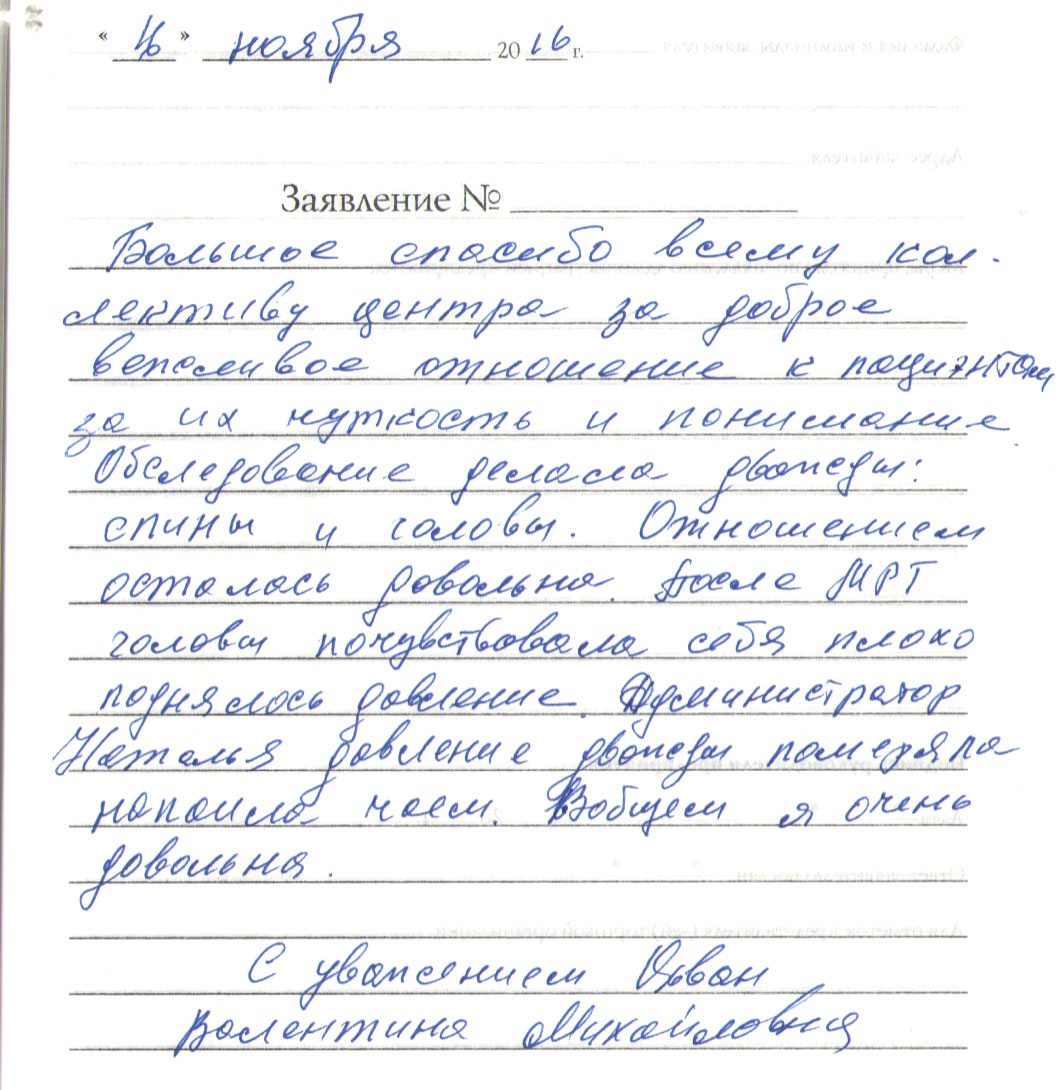 " 16 " ноября 2016 г.
Заявление №
Большое спасибо всему кол-
лективу центра за доброе
вежливое отношение к пациэнтам
за их чуткость и понимание.
Обследование делала дважды:
спины и головы. Отношением
осталась довольна. После МРТ
головы почувствовала себя плохо
поднялось давление. Администратор
Наталья давление дважды померяла
напоила чаем. Вобщем я очень
довольна.
С уважением
Валентина Михайловна